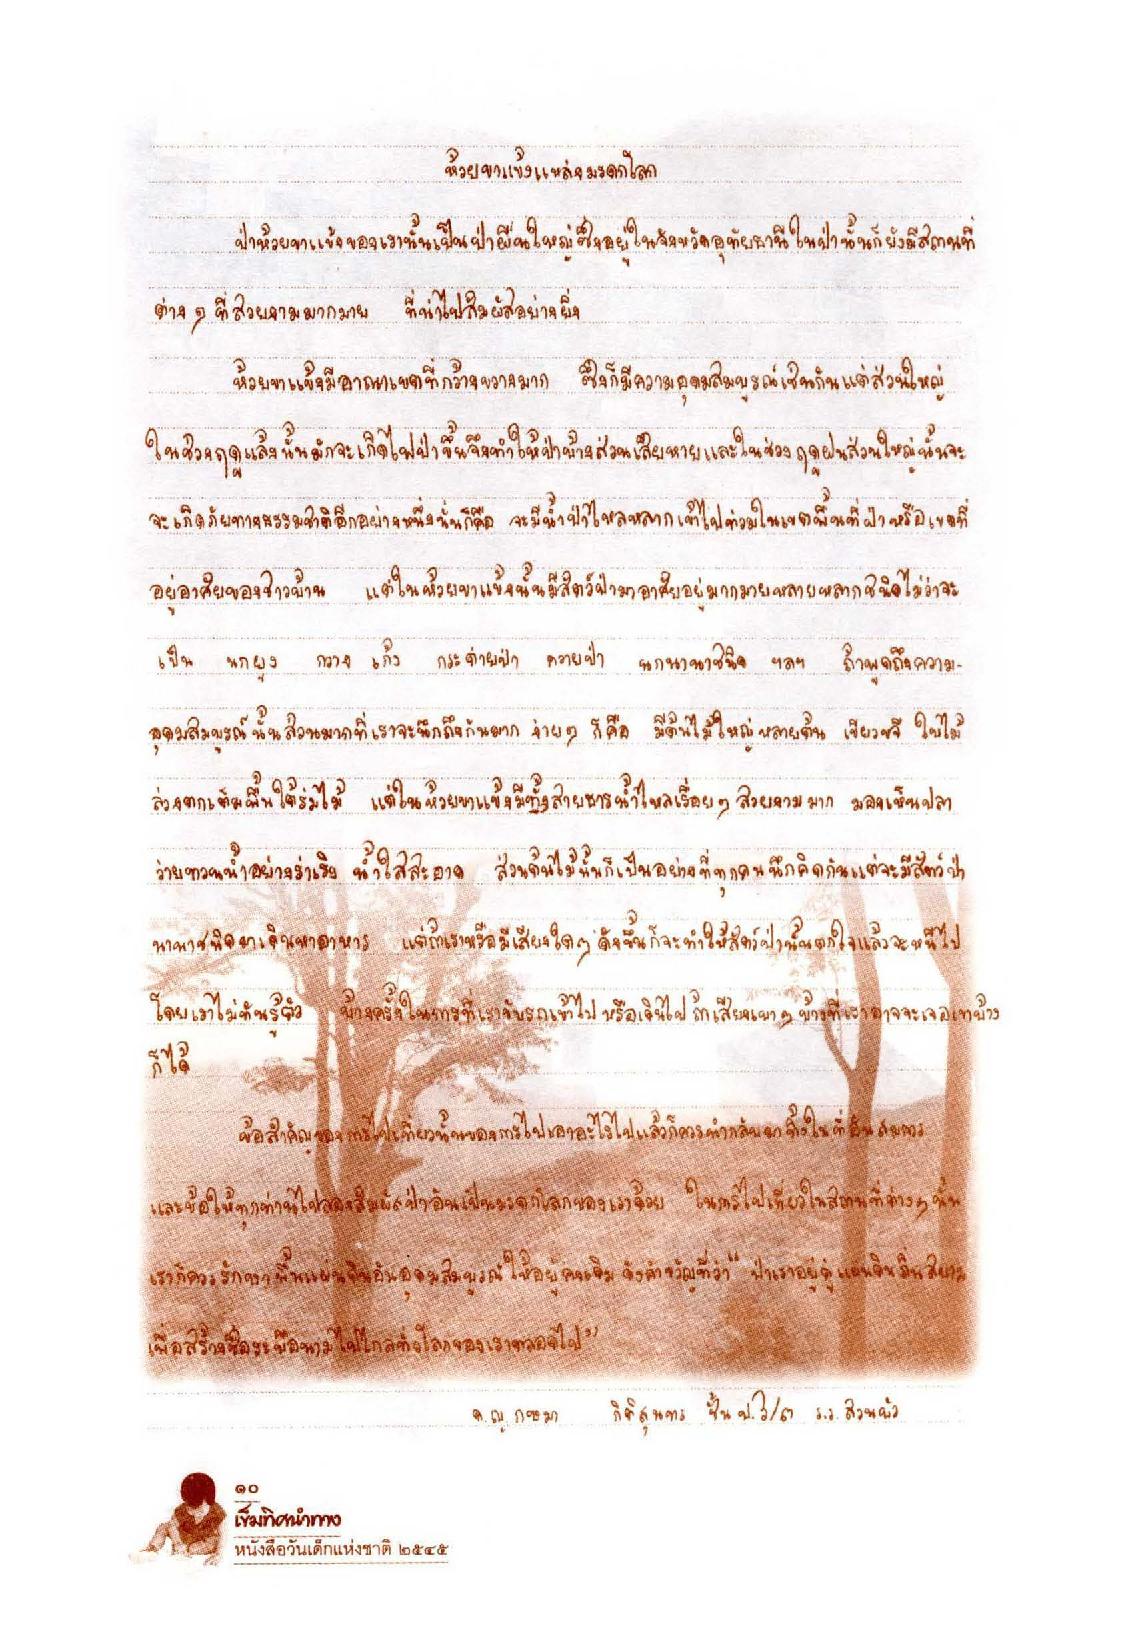 ห้วยขาแข้งแหล่งมรดกโลก
ป่าห้วยขาแข้งของเรานั้นเป็นป่าผืนใหญ่ซึ่งอยู่ในจังหวัดอุทัยธานีในป่านั้นก็ยังมีสถานที่
ต่าง ๆ ที่สวยงามมากมาย ที่น่าไปสัมผัสอย่างยิ่ง
ห้วยขาแข้งมีอาณาเขตที่กว้างขวางมาก ซึ่งก็มีความอุดมสมบูรณ์เช่นกันแต่ส่วนใหญ่
ในช่วงฤดูแล้งนั้นมักจะเกิดไฟป่าขึ้นจึงทำให้ป่าบ้างส่วนเสียหายและในช่วงฤดูฝนส่วนใหญ่นั้นจะ
จะเกิดภัยทางธรรมชาติอีกอย่างหนึ่งนั่นก็คือ จะมีน้ำป่าไหลหลากเข้าไปท่วมในเขตพื้นที่ป่าหรือเขตที่
อยู่อาศัยของชาวบ้าน แต่ในห้วยขาแข้งนั้นมีสัตว์ป่ามาอาศัยอยู่มากมายหลายหลากชนิดไม่ว่าจะ
เป็น นกยูง กวาง เก้ง กระต่ายป่า ควายป่า นกนานาชนิด ฯลฯ ถ้าพูดถึงความ-
อุดมสมบูรณ์นั้นส่วนมากที่เราจะนึกถึงกันมาก ง่ายๆ ก็คือ มีต้นไม้ใหญ่หลายต้น เขียวขจี ใบไม้
ล่วงตกเต็มพื้นใต้ร่มไม้ แต่ในห้วยขาแข้งมีทั้งสายธารน้ำไหลเรื่อยๆ สวยงามมาก มองเห็นปลา
ว่ายทวนน้ำอย่างร่าเริง น้ำใสสะอาด ส่วนต้นไม้นั้นก็เป็นอย่างที่ทุกคนนึกคิดกันแต่จะมีสัตว์ป่า
นานาชนิดมาเดินหาอาหาร แต่ถ้าเราหรือมีเสียงใดๆ ดังขึ้นก็จะทำให้สัตว์ป่านั้นตกใจแล้วจะหนีไป
โดยเราไม่ทันรู้ตัว บ้างครั้งในการที่เราขับรถเข้าไป หรือเดินไป ถ้าเสียงเบาๆ บ้างทีเราอาจจะเจอเขาบ้าง
ก็ได้
ข้อสำคัญของการไปเที่ยวนั้นของการไปเอาอะไรไปแล้วก็ควรนำกลับมาทิ้งในที่อันสมควร
และขอให้ทุกท่านไปลองสัมผัสป่าอันเป็นมรดกโลกของเราด้วย ในการไปเที่ยวในสถานที่ต่างๆ นั้น
เราก็ควรรักษาพื้นแผ่นดินอันอุดมสมบูรณ์ให้อยู่คงเดิม ดังคำขวัญที่ว่า “ ป่าเราอยู่คู่แผ่นดินถิ่นสยาม
เพื่อสร้างชื่อระบือนามไปไกลทั่วโลกของเราตลอดไป”
ด.ญ. กชมา กิติสุนทร ชั้น ป.๖/๓ ร.ร. สวนบัว
๑๐
เข็มทิศนำทาง
หนังสือวันเด็กแห่งชาติ ๒๕๔๕